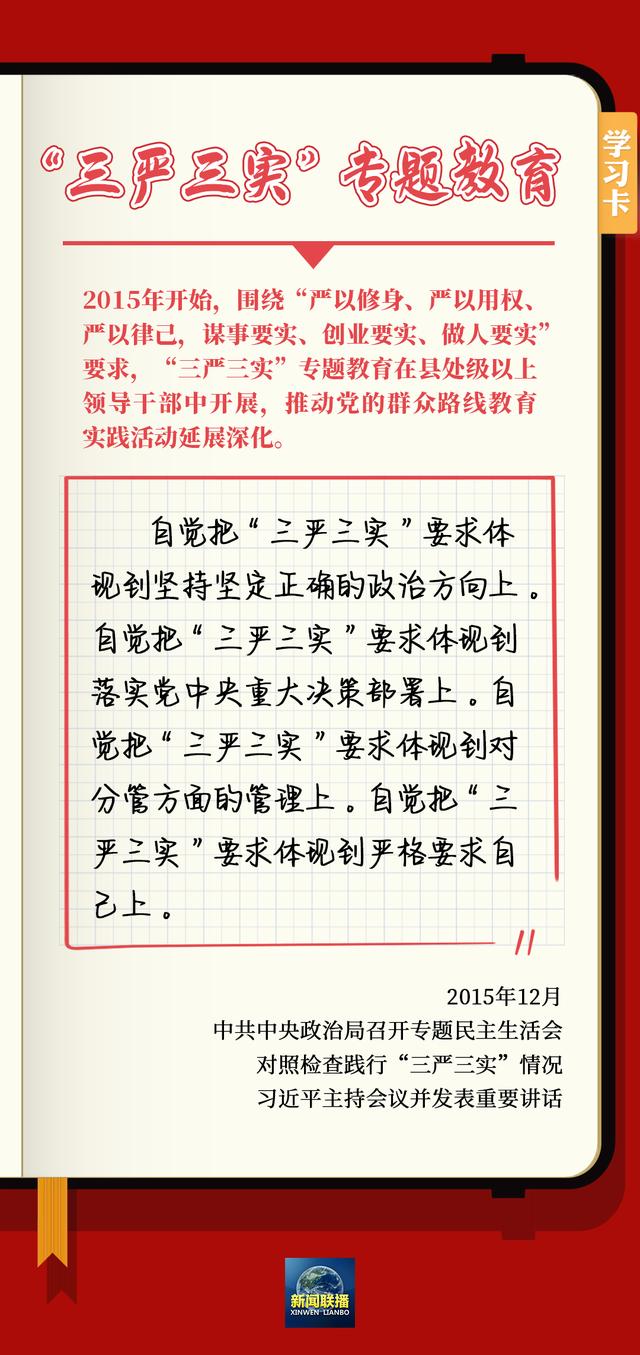 “三严三实”专题教育
学习卡
2015年开始，围绕“严以修身、严以用权、
严以律己，谋事要实、创业要实、做人要实”
要求，“三严三实”专题教育在县处级以上
领导干部中开展，推动党的群众路线教育
实践活动延展深化。
自觉把“三严三实”要求体
现到坚持坚定正确的政治方向上。
自觉把“三严三实”要求体现到
落实党中央重大决策部署上。自
觉把“三严三实”要求体现到对
分管方面的管理上。自觉把“三
严三实”要求体现到严格要求自
己上。
2015年12月
中共中央政治局召开专题民主生活会
对照检查践行“三严三实”情况
习近平主持会议并发表重要讲话
新闻联播
XINWEN LIANBO